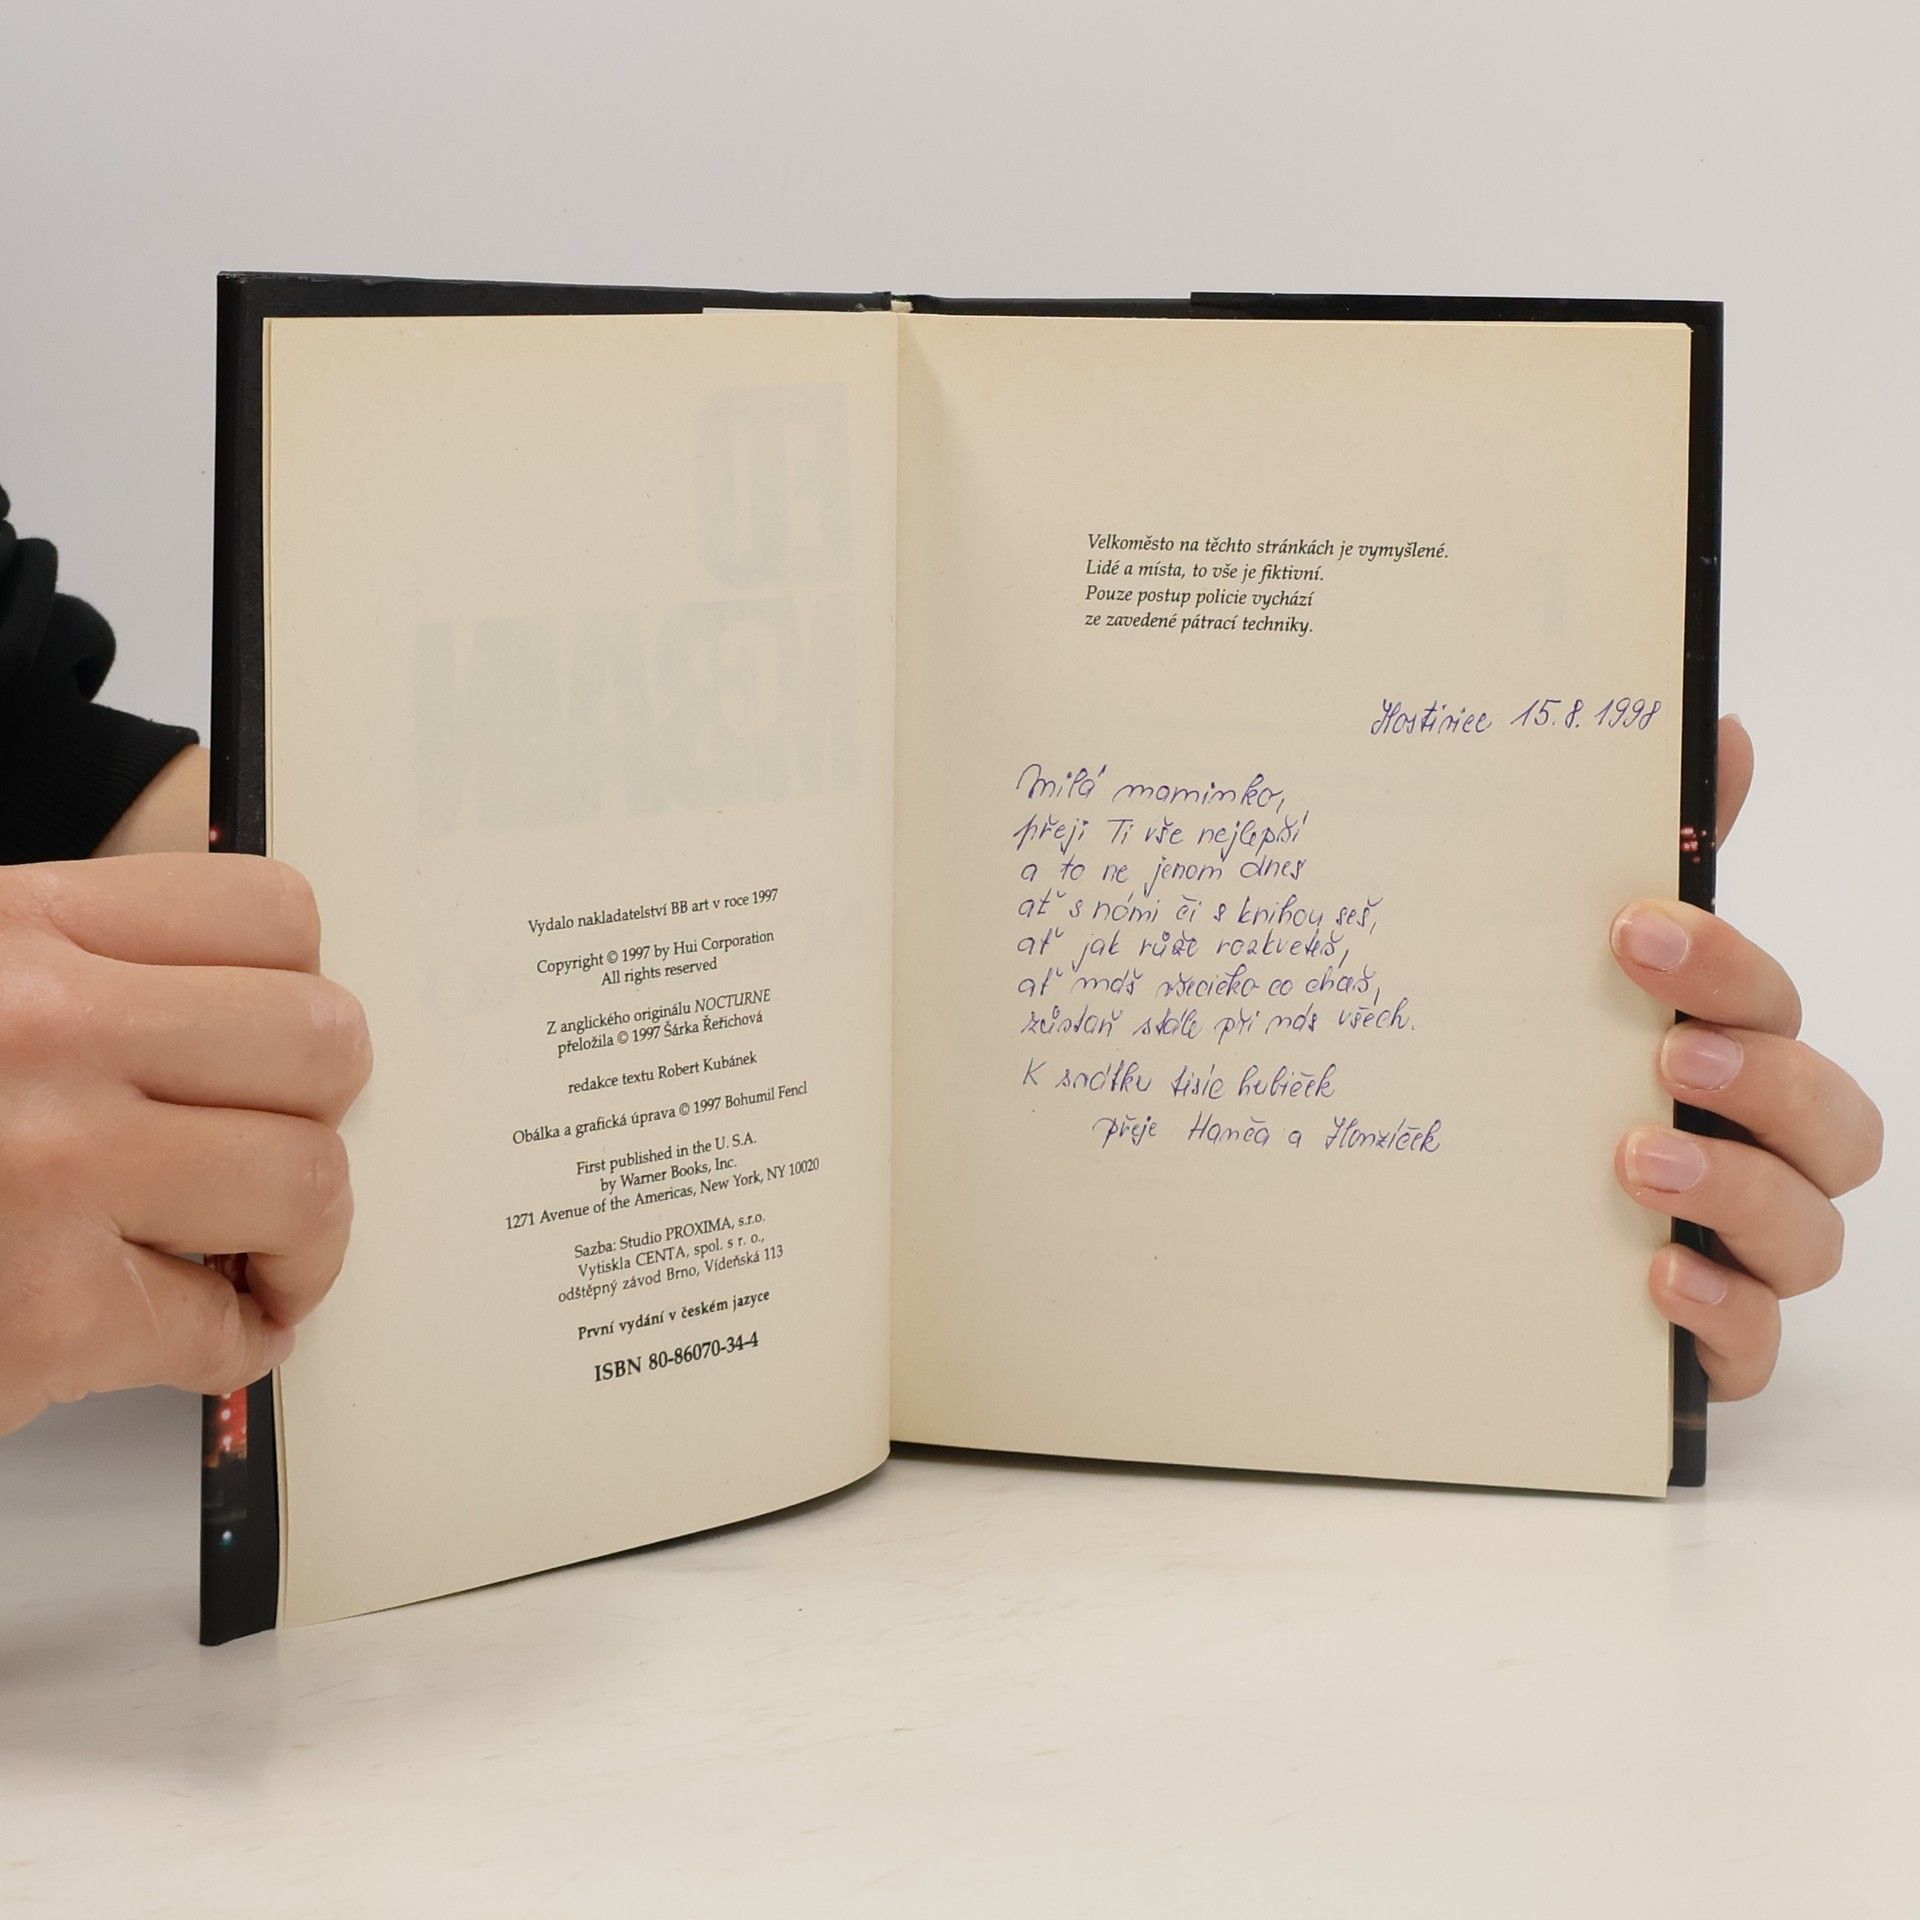 Vydalo nakladatelství BB art v roce 1997
Copyright © 1997 by Hui Corporation
All rights reserved
Z anglického originálu NOCTURNE
přeložila © 1997 Šárka Řeřichová
redakce textu Robert Kubánek
Obálka a grafická úprava © 1997 Bohumil Fencl
First published in the U. S.A.
by Warner Books, Inc.
1271 Avenue of the Americas, New York, NY 10020
Sazba: Studio PROXIMA, s.r.o.
Vytiskla CENTA, spol. s r. o.,
odštěpný závod Brno, Vídeňská 113
První vydání v českém jazyce
ISBN 80-86070-34-4
Velkoměsto na těchto stránkách je vymyšlené.
Lidé a místa, to vše je fiktivní.
Pouze postup policie vychází
ze zavedené pátrací techniky.
Hostivice 15.8.1998
Milá maminko,
přeji Ti vše nejlepší
a to ne jenom dnes
ať s námi či s knihou seš,
ať jak růže rozkveteš,
ať máš všecičko co chceš,
zůstaň stále při nás všech.
K svátku tisíc hubiček
přeje Hanča a Honzíček